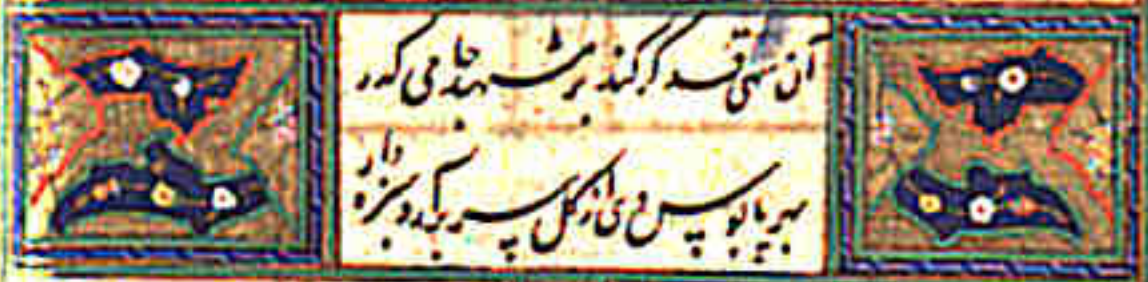 آن سهی قد گر کند بر مشهد جامی گذر
بهر پابوس وی از گل سر برآرد سبزه وار